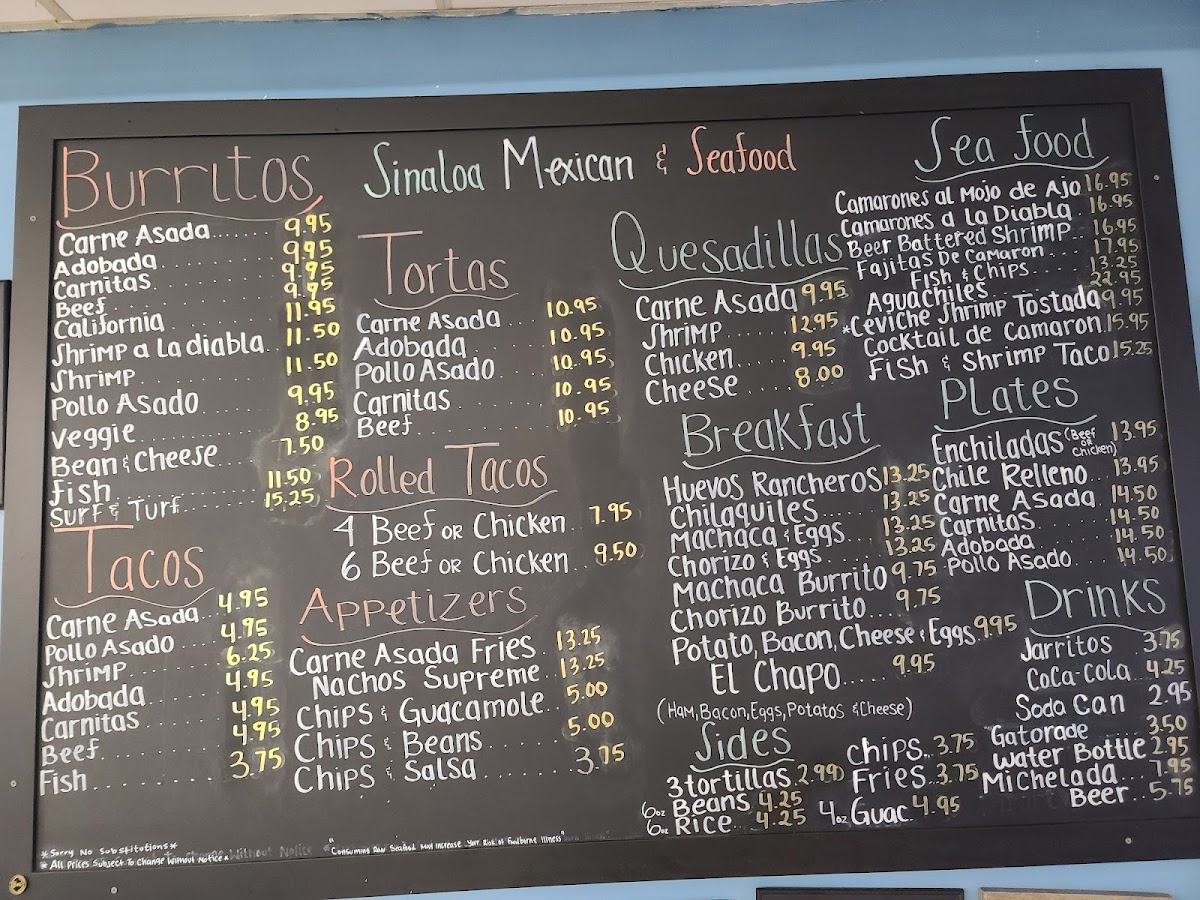 Sinaloa Mexican & Seafood
Burritos
Carne Asada....... 9.95
Adobada 9.95
Carnitas 9.95
Beef 9.95
California 11.95
Shrimp a La diabla 11.50
Shrimp 11.50
Pollo Asado 9.95
Veggie 8.95
Bean & Cheese 7.50
Fish 11.50
Surf & Turf 15.25
Tacos
Carne Asada 4.95
Pollo Asado 4.95
Shrimp 6.25
Adobada 4.95
Carnitas 4.95
Beef 4.95
Fish 3.75
*Sorry No Substitutions*
*All Prices Subject To Change Without Notice*
Tortas
Carne Asada 10.95
Adobada 10.95
Pollo Asado 10.95
Carnitas 10.95
Beef 10.95
Rolled Tacos
4 Beef or Chicken 7.95
6 Beef or Chicken 9.50
Appetizers
Carne Asada Fries. 13.25
Nachos Supreme.. 13.25
Chips & Guacamole 5.00
Chips & Beans 5.00
Chips & Salsa 3.75
"Consuming Raw Seafood May Increase Your Risk of Foodborne Illness"
Quesadillas
Carne Asada 9.95
Shrimp 12.95
Chicken 9.95
Cheese 8.00
Breakfast
Huevos Rancheros 13.25
Chilaquiles 13.25
Machaca & Eggs 13.25
Chorizo & Eggs 13.25
Machaca Burrito 9.75
Chorizo Burrito... 9.75
Potato, Bacon, Cheese & Eggs 9.95
El Chapo..... 9.95
(Ham, Bacon, Eggs, Potatos & Cheese)
Sides
3 tortillas 2.99
6oz Beans 4.25
6oz Rice 4.25
Chips.. 3.75
Fries.. 3.75
4oz Guac. 4.95
Sea food
Camarones al Mojo de Ajo 16.95
Camarones a la Diabla. 16.95
Beer Battered Shrimp.. 16.95
Fajitas De Camaron... 17.95
Fish & Chips... 13.25
Aguachiles 22.95
*Ceviche Shrimp Tostada 9.95
Cocktail de Camaron 15.95
Fish & Shrimp Taco 15.25
Plates
Enchiladas (Beef or Chicken) 13.95
Chile Relleno.. 13.95
Carne Asada 14.50
Carnitas 14.50
Adobada 14.50
Pollo Asado 14.50
Drinks
Jarritos 3.75
Coca-Cola 4.25
Soda Can 2.95
Gatorade 3.50
Water Bottle 2.95
Michelada 7.95
Beer.. 5.75